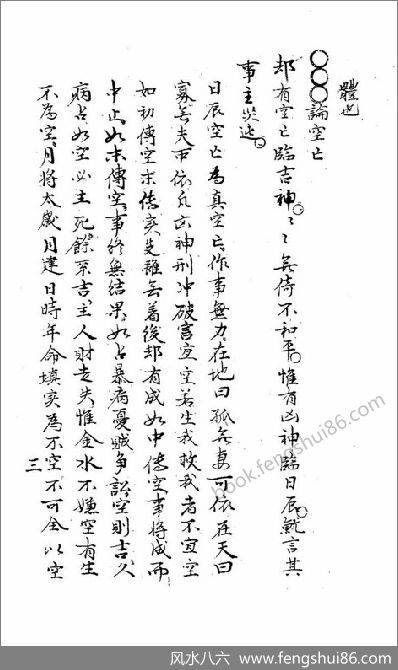 體也
○○○論空亡
却有空亡臨吉神。〻〻無倚不和平。惟有凶神臨日辰。就言其
事主災迍。
日辰空亡為真空亡作事無力在地曰孤無妻可依在天曰
寡無夫可依凡凶神刑冲破害宜空若生我救我者不宜空
如初傳空末傳實是雖無着後却有成如中傳空事將成而
中止如末傳空事終無結果如占暴病憂賊爭訟空則吉久
病占如空必主死餘不吉主人財走失惟金水不嫌空有生
不為空月將太歲月建日時年命填實為不空不可全以空
三
book.fengshui86.com
风水八六 | www.fengshui86.com